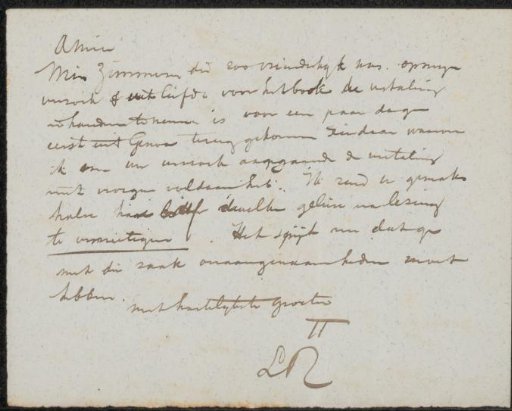 Amice
Mej Zimmerman die zoo vriendelijk was op mijn
verzoek & uit liefde voor het boek de vertaling
in handen te nemen is voor een paar dagen
eerst uit Genua terug gekomen Ziedaar waarom
ik om uw verzoek aangaande de vertaling
niet vroeger voldaan heb. Ik zend u gemaks
halve haar brief dewelke gelieve na lezing
te vernietigen. Het spijt me dat ge
met die zaak onaangenaamheden moet
hebben.
met hartelijkste groeten
TT
LR